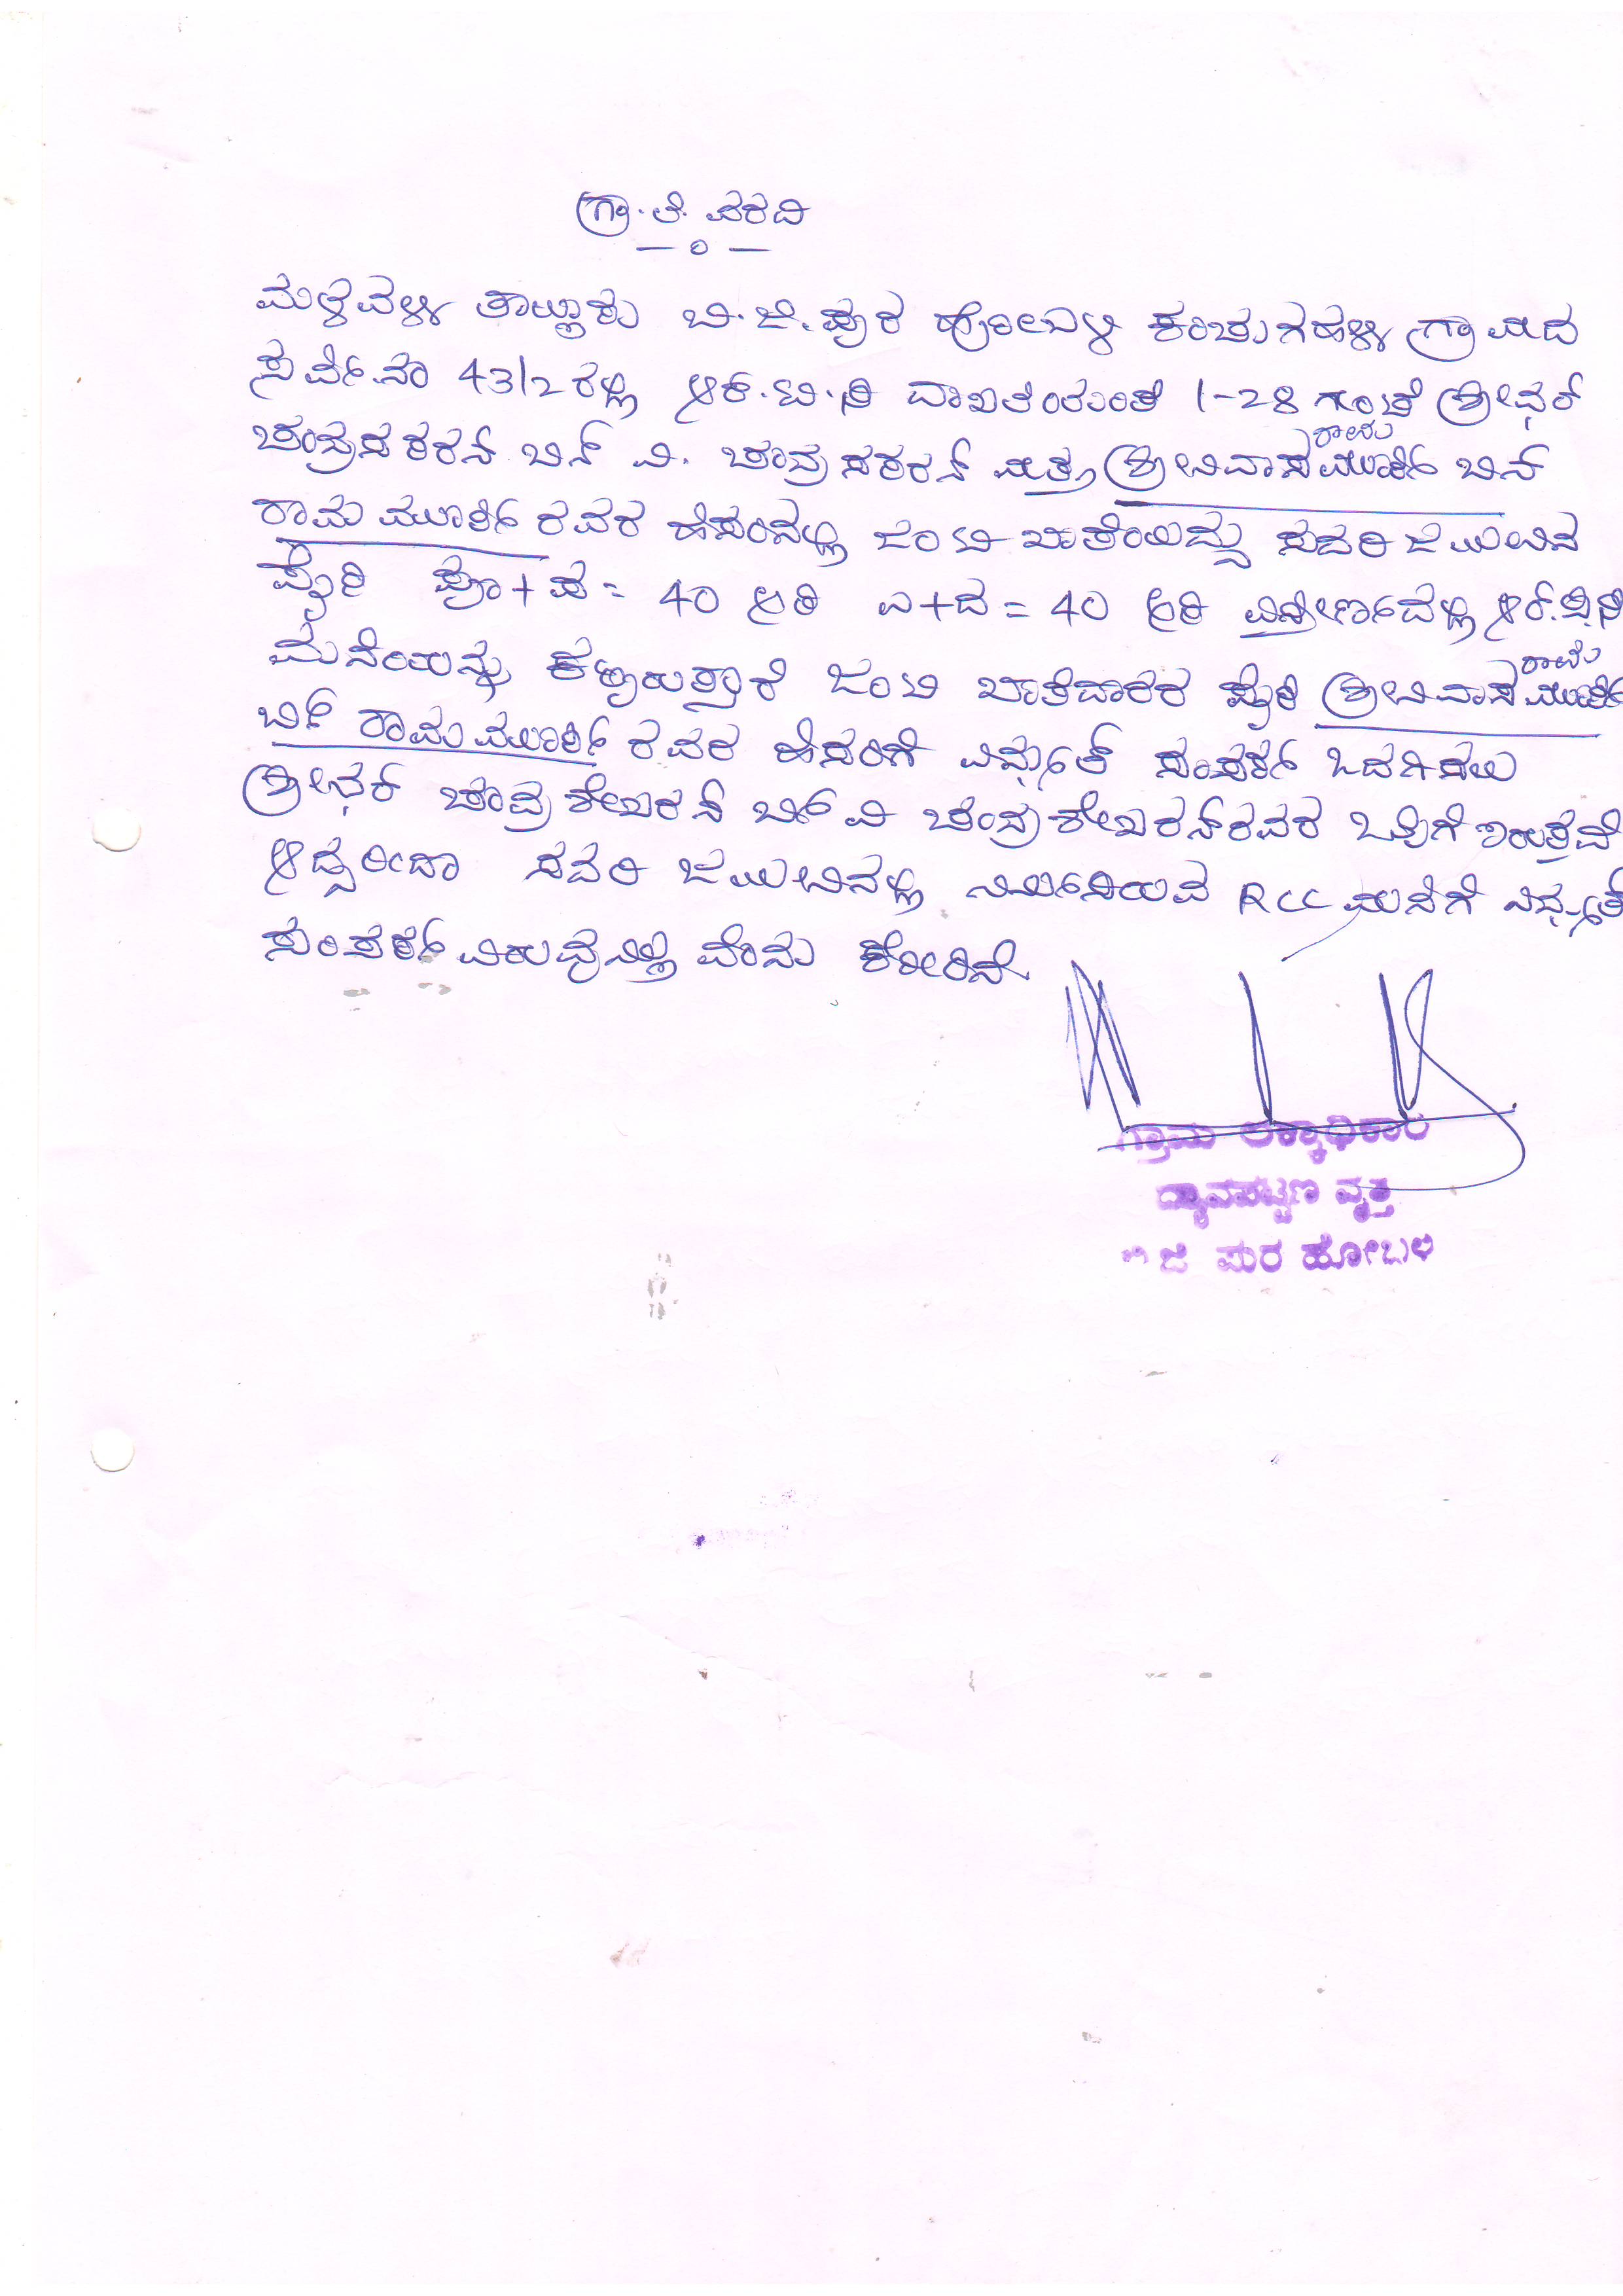 ಗ್ರಾ.ಲೆ. ವರದಿ
—ಂ—
ಮಳವಳ್ಳಿ ತಾಲ್ಲೂಕು ಬಿ.ಜಿ.ಪುರ ಹೋಬಳಿ ಕಂಚುಗಹಳ್ಳಿ ಗ್ರಾಮದ
ಸರ್ವೆ.ನಂ 43/2 ರಲ್ಲಿ ಆರ್.ಟಿ.ಸಿ ದಾಖಲೆಯಂತೆ 1-28 ಗುಂಟೆ ಶ್ರೀಧರ್
ಚಂದ್ರಸೇಕರನ್ ಬಿನ್ ವಿ. ಚಂದ್ರಸೇಕರನ್ ಮತ್ತು ಶ್ರೀನಿವಾಸ ರಾಮ ಮೂರ್ತಿ ಬಿನ್
ರಾಮ ಮೂರ್ತಿ ರವರ ಹೆಸರಿನಲ್ಲಿ ಜಂಟಿ ಖಾತೆಯಿದ್ದು ಸದರಿ ಜಮೀನಿನ
ಪೈಕಿ ಪೂ+ಪ = 40 ಅಡಿ ಉ+ದ = 40 ಅಡಿ ವಿಸ್ತೀರ್ಣದಲ್ಲಿ ಆರ್.ಸಿ.ಸಿ
ಮನೆಯನ್ನು ಕಟ್ಟಿರುತ್ತಾರೆ ಜಂಟಿ ಖಾತೆದಾರರ ಪೈಕಿ ಶ್ರೀನಿವಾಸ ರಾಮ ಮೂರ್ತಿ
ಬಿನ್ ರಾಮ ಮೂರ್ತಿ ರವರ ಹೆಸರಿಗೆ ವಿದ್ಯುತ್ ಸಂಪರ್ಕ ಒದಗಿಸಲು
ಶ್ರೀಧರ್ ಚಂದ್ರಶೇಖರನ್ ಬಿನ್ ವಿ ಚಂದ್ರಶೇಖರನ್ ರವರ ಒಪ್ಪಿಗೆ ಇರುತ್ತದೆ
ಆದ್ದರಿಂದ ಸದರಿ ಜಮೀನಿನಲ್ಲಿ ನಿರ್ಮಿಸಿರುವ RCC ಮನೆಗೆ ವಿದ್ಯುತ್
ಸಂಪರ್ಕ ವಿರುವುದಿಲ್ಲ ವೆಂದು ಕೋರಿದೆ.
ಗ್ರಾಮ ಲೆಕ್ಕಾಧಿಕಾರಿ
ದ್ಯಾವಪಟ್ಟಣ ವೃತ್ತ
ಬಿ ಜಿ ಪುರ ಹೋಬಳಿ